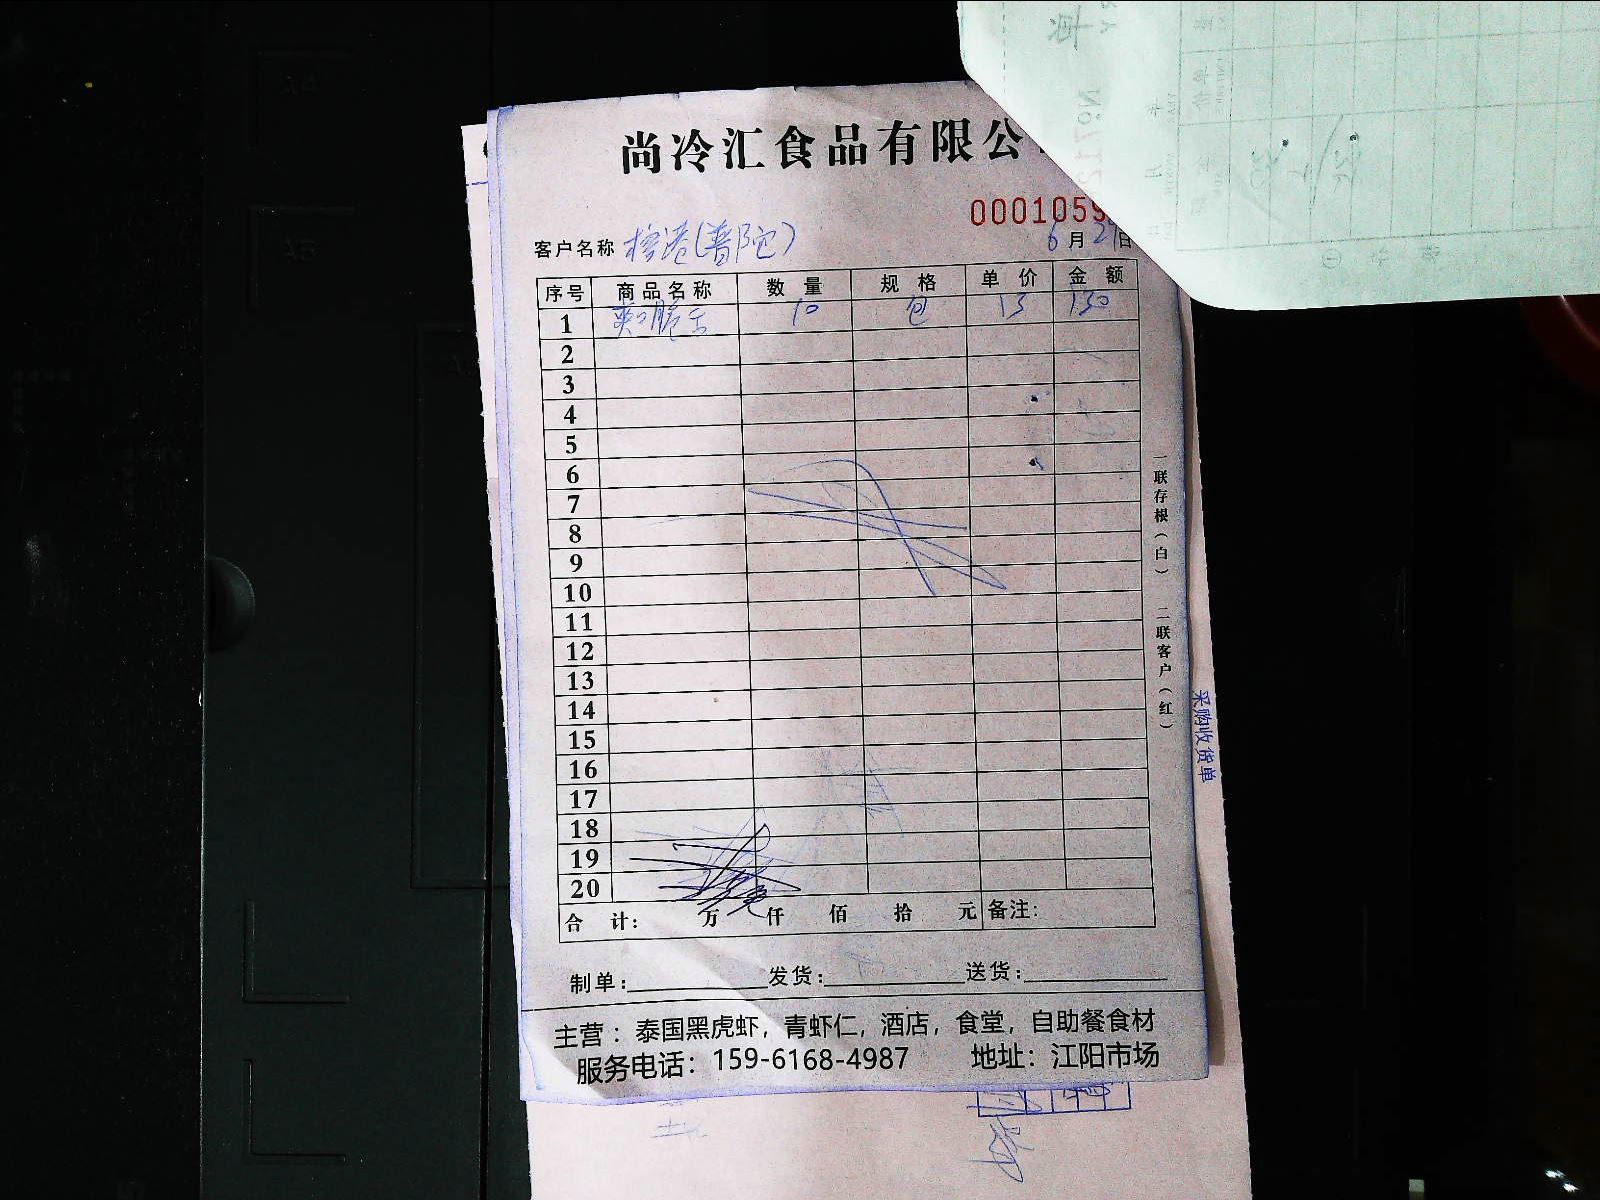 尚冷汇食品有限公
0001059
客户名称 (普陀) 6月21日
序号 商品名称 数量 规格 单价 金额
1 爽口脆舌 10 包 13 130
2
3
4
5
6
7
8
9
10
11
12
13
14
15
16
17
18
19
20
合计： 万 仟 佰 拾 元 备注：
制单： 发货： 送货：
主营：泰国黑虎虾，青虾仁，酒店，食堂，自助餐食材
服务电话：159-6168-4987 地址：江阳市场
一联存根（白） 二联客户（红）
采购收货单